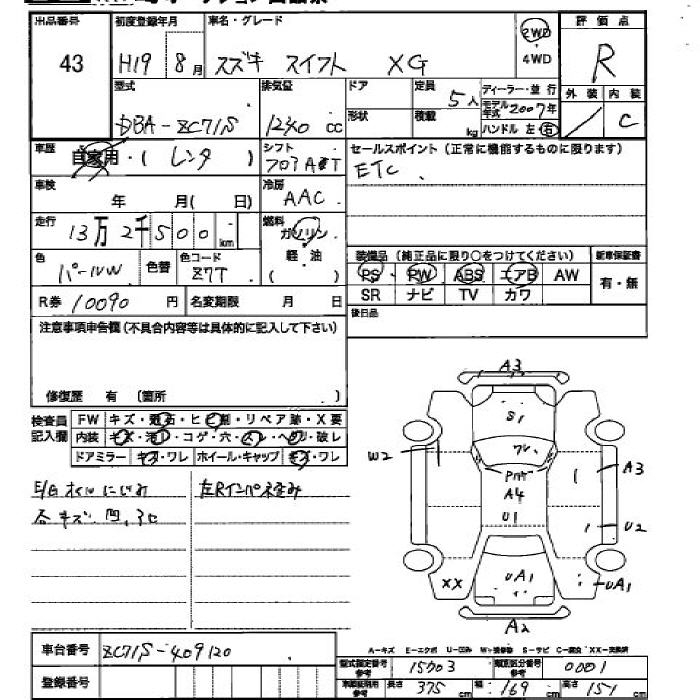 出品番号 初度登録年月 車名・グレード 評価点
43 H19 8月 スズキ スイフト XG 2WD R
4WD
型式 排気量 ドア 定員 5人 ディーラー・並行 外装 内装
モデル年式 2007年
DBA-ZC71S 1240 cc 形状 積載 kg ハンドル 左 右 / C
車歴 自家用・( レンタ ) シフト セールスポイント (正常に機能するものに限ります)
フロアAT ETC
車検 年 月( 日) 冷房 AAC
走行 13万2千500km 燃料 ガソリン
軽・油
色 パールW 色替 色コード Z7T ( )
装備品 (純正品に限り○をつけてください) 新車保証書
PS PW ABS エアB AW 有・無
SR ナビ TV カワ
R券 10090円 名変期限 月 日
後日品
注意事項申告欄(不具合内容等は具体的に記入して下さい)
修復歴 有 (箇所 )
検査員記入欄 FW キズ・飛石・ヒビ割・リペア跡・X要
内装 キズ・汚れ・コゲ・穴・スレ・ヘタリ・破レ
ドアミラー キズ・ワレ ホイール・キャップ キズ・ワレ
左Rインパネ歪み
A3
S1
ワレ
W2
A4
U1
A3
U2
XX
UA1
UA1
A2
A-キズ E-エクボ U-凹み W-補修跡 S-サビ C-腐食 XX-交換済
車台番号 ZC71S-409120
登録番号
型式指定番号参考 15703 類別区分番号参考 0001
車庫証明用参考 長さ 375cm 幅 169cm 高さ 151cm